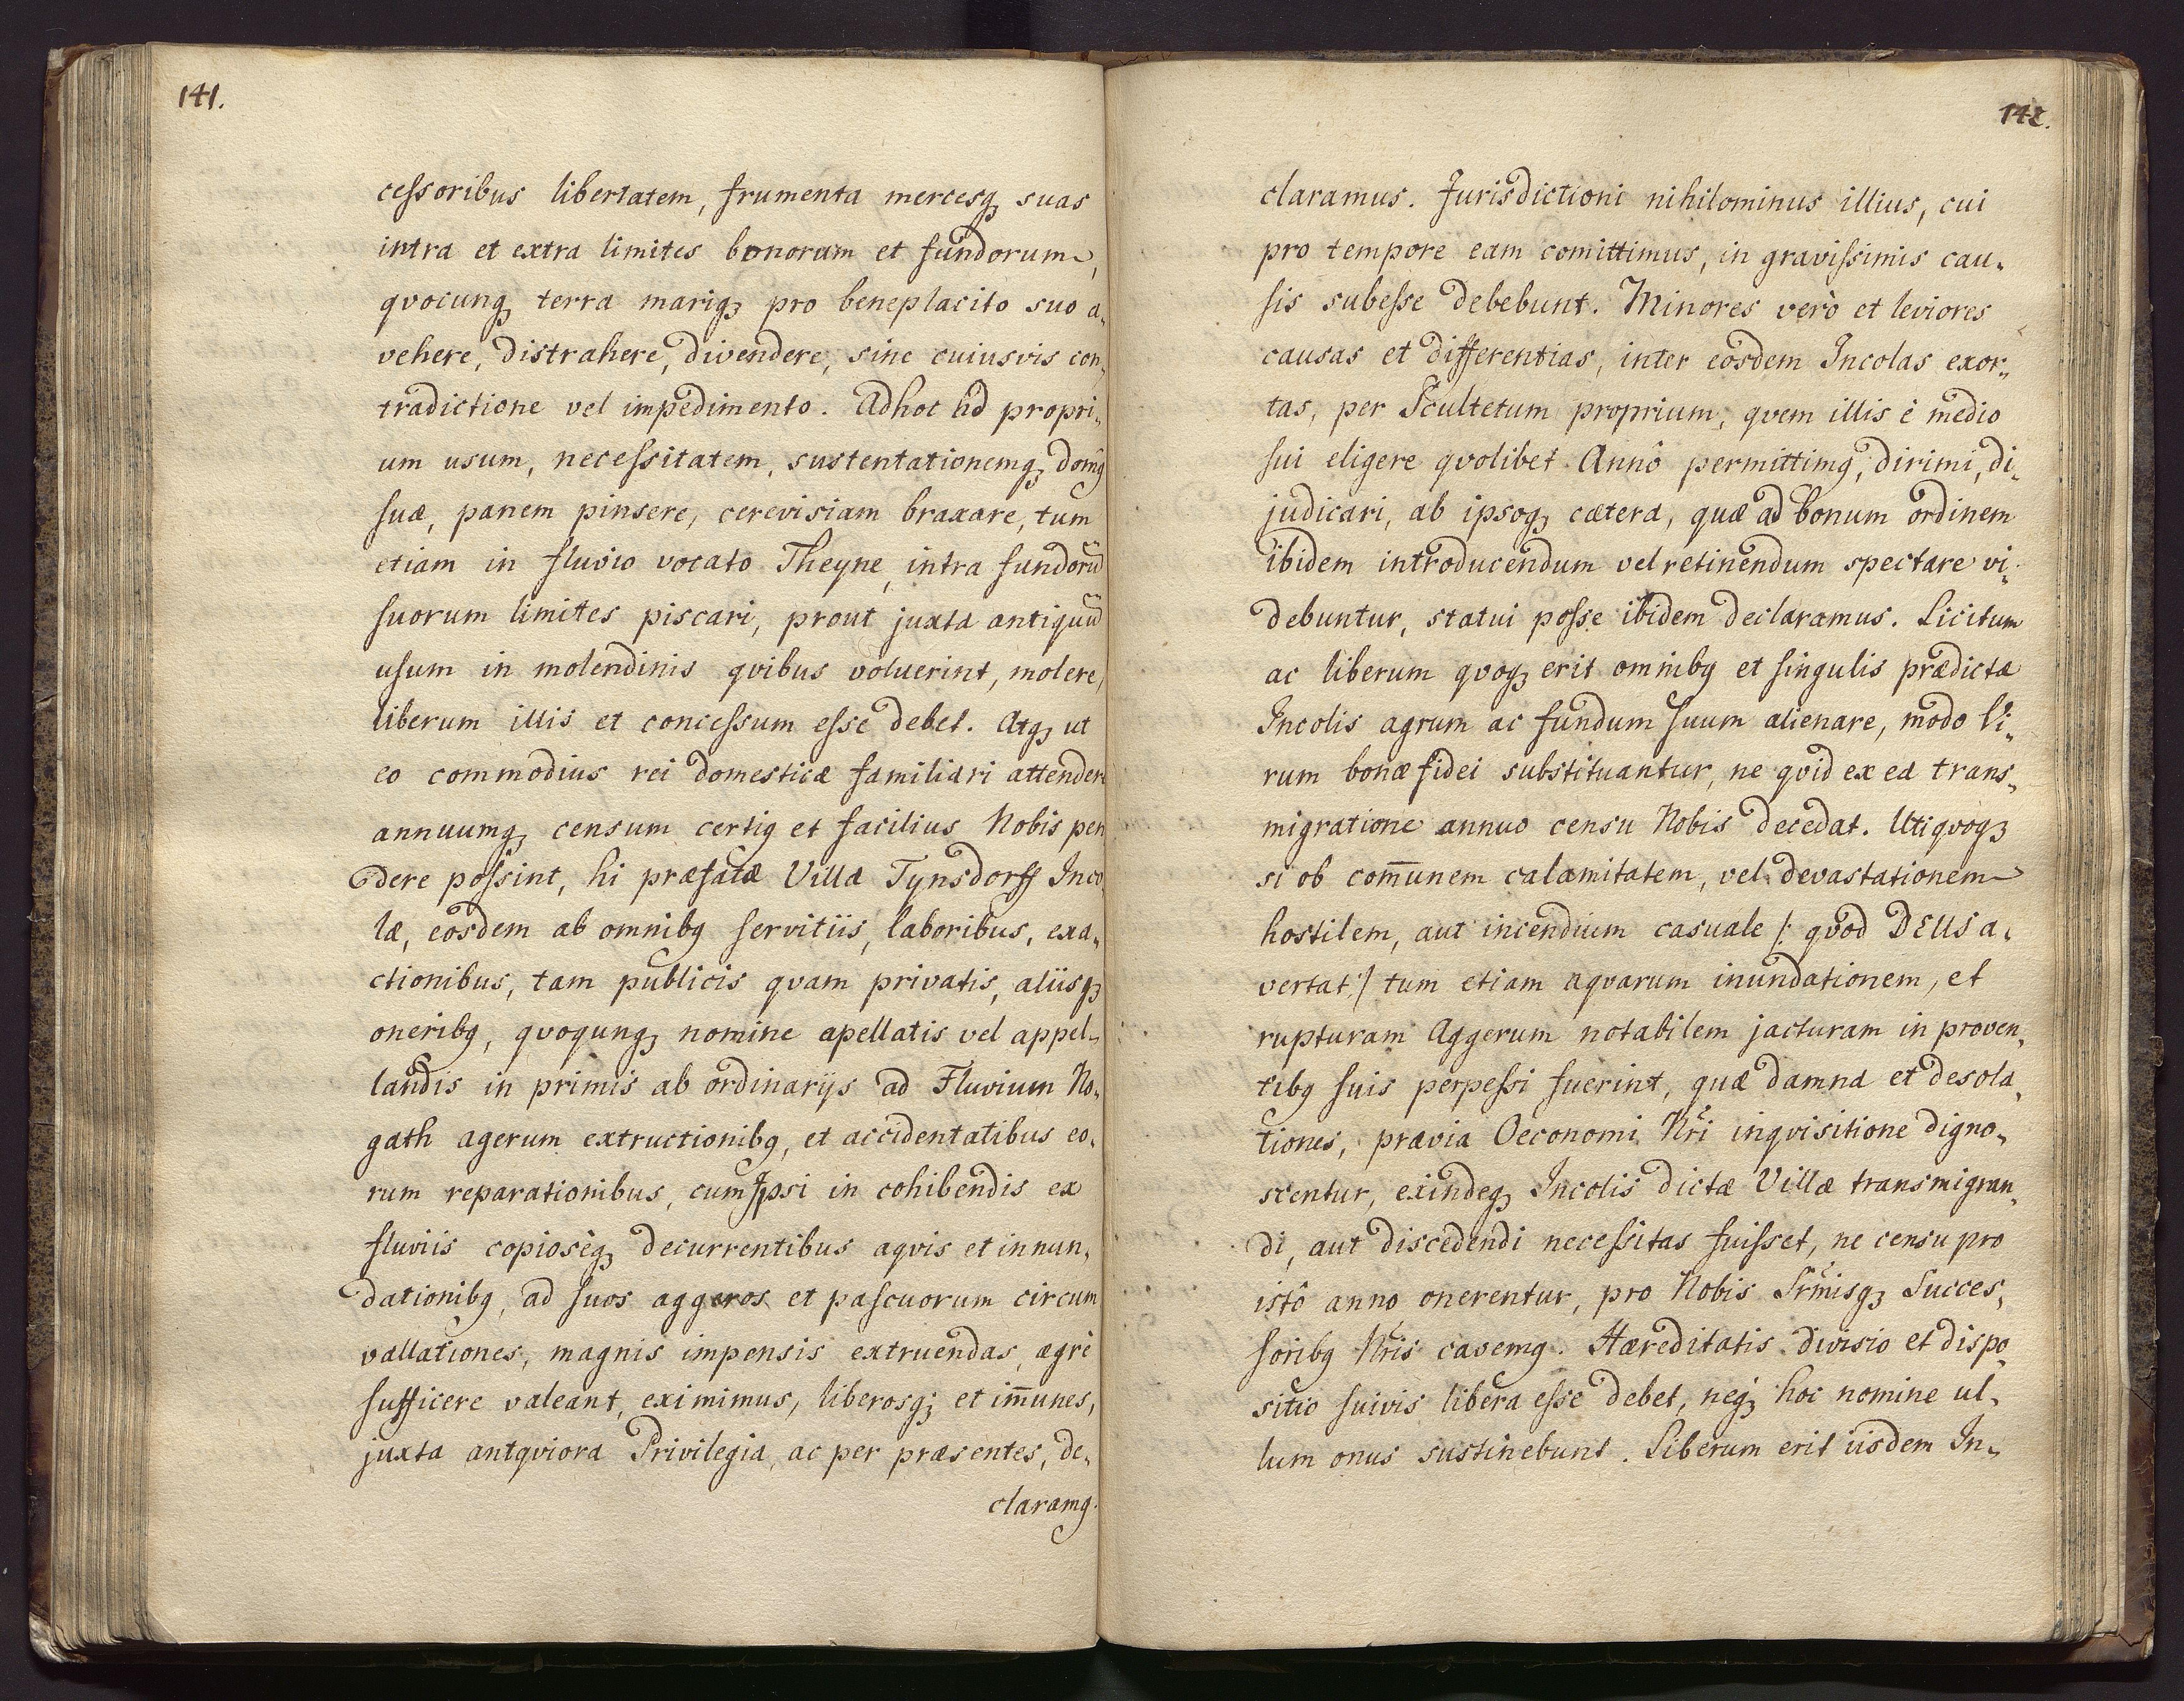 141.
cessoribus libertatem, frumenta mercesq; suas
intra et extra limites bonorum et fundorum,
qvocunq; terra mariq; pro beneplacito suo a„
vehere, distrahere, divendere, sine cuiusvis con„
tradictione vel impedimento. Adhoc ad propri„
um usum, necessitatem, sustentationemq; domus
suæ, panem pinsere, cerevisiam braxare, tum
etiam in fluvio vocato Theyne, intra fundorũ
suorum limites piscari, prout juxta antiquũ
usum in molendinis qvibus voluerint, molere,
liberum illis et concessum esse debet. Atq; ut
eo commodius rei domesticæ familiari attender
annuumq; censum certius et facilius Nobis pen
dere possint, hi præfatæ Villa Tynsdorff Inco
læ, eosdem ab omnibus servitiis, laboribus, exa„
ctionibus, tam publicis qvam privatis, aliisq;
oneribus, qvoqunq; nomine apellatis vel appel„
landis in primis ab ordinarijs ad Fluvium No„
gath agerum extructionibus, et accidentatibus eo„
rum reparationibus, cum Ipsi in cohibendis ex
fluviis copiosèq; decurrentibus aqvis et innun„
dationibus, ad suos aggeros et pascuorum circum
vallationes, magnis impensis extruendas, ægrè
sufficere valeant, eximimus, liberosq; et im̃unes,
juxta antqviora Privilegia, ac per præsentes, de„
claramus.
142.
claramus. Jurisdictioni nihilominus illius, cui
pro tempore eam comittimus, in gravissimis cau„
sis subesse debebunt. Minores verò et leviores
causas et differentias, inter eosdem Incolas exor„
tas, per Scultetum proprium, qvem illis è medio
sui eligere qvolibet Annô permittimus, dirimi, di„
judicari, ab ipsoq; cætera, quæ ad bonum ordinem
ibidem introducendum vel retinendum spectare vi„
debuntur, statui posse ibidem declaramus. Licitum
ac liberum qvoq; erit omnibus et singulis prædictæ
Incolis agrum ac fundum suum alienare, modo Vi„
rum bonæ fidei substituantur, ne qvid ex ea trans„
migratione annuo censu Nobis decedat. Uti qvoq;
si ob com̃unem calamitatem, vel devastationem
hostilem, aut incendium casuale /: qvod DEUS a„
vertat :/ tum etiam aqvarum inundationem, et
rupturam Aggerum notabilem jacturam in proven„
tibus suis perpessi fuerint, quæ damna et desola„
tiones, prævia Oeconomi Nr̃i inqvisitione digno„
scentur, exindeq; Incolis dictæ Villæ transmigran„
di, aut discedendi necessitas fuisset, ne censu pro
istô anno onerentur, pro Nobis Sr̃misq; Succes„
soribus Nr̃is cavemus. Hæreditatis divisio et dispo„
sitio suivis libera esse debet, neq; hoc nomine ul„
lum onus sustinebunt. Liberum erit iisdem In„